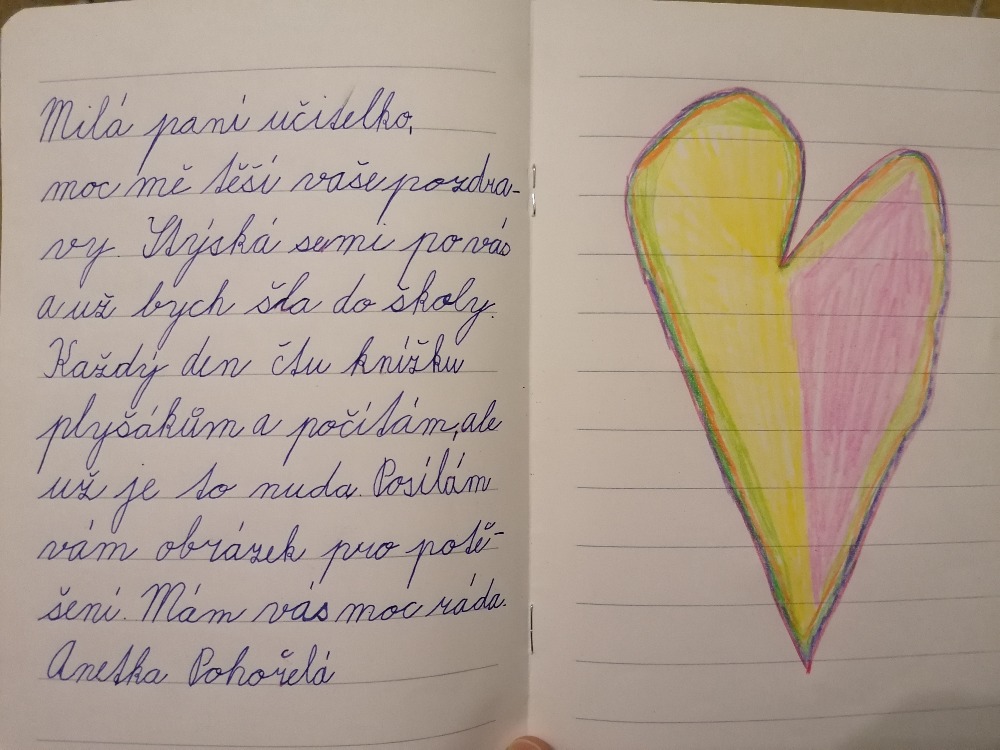 Milá paní učitelko,
moc mě těší vaše pozdra-
vy. Stýská se mi po vás
a už bych šla do školy.
Každý den čtu knížku
plyšákům a počítám, ale
už je to nuda. Posílám
vám obrázek pro potě-
šení. Mám vás moc ráda.
Anetka Pohořelá